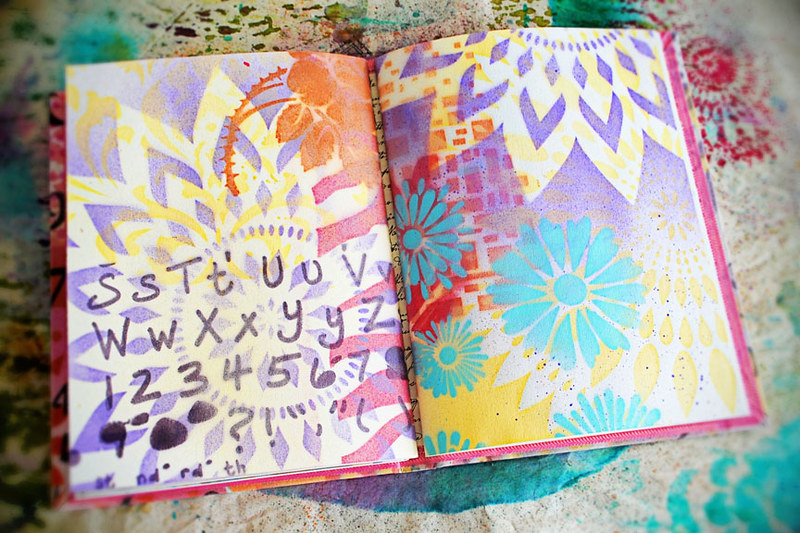 S s T t U u V v
W w X x Y y Z
1 2 3 4 5 6 7
9 ? ! ' , " ( )
st nd rd th